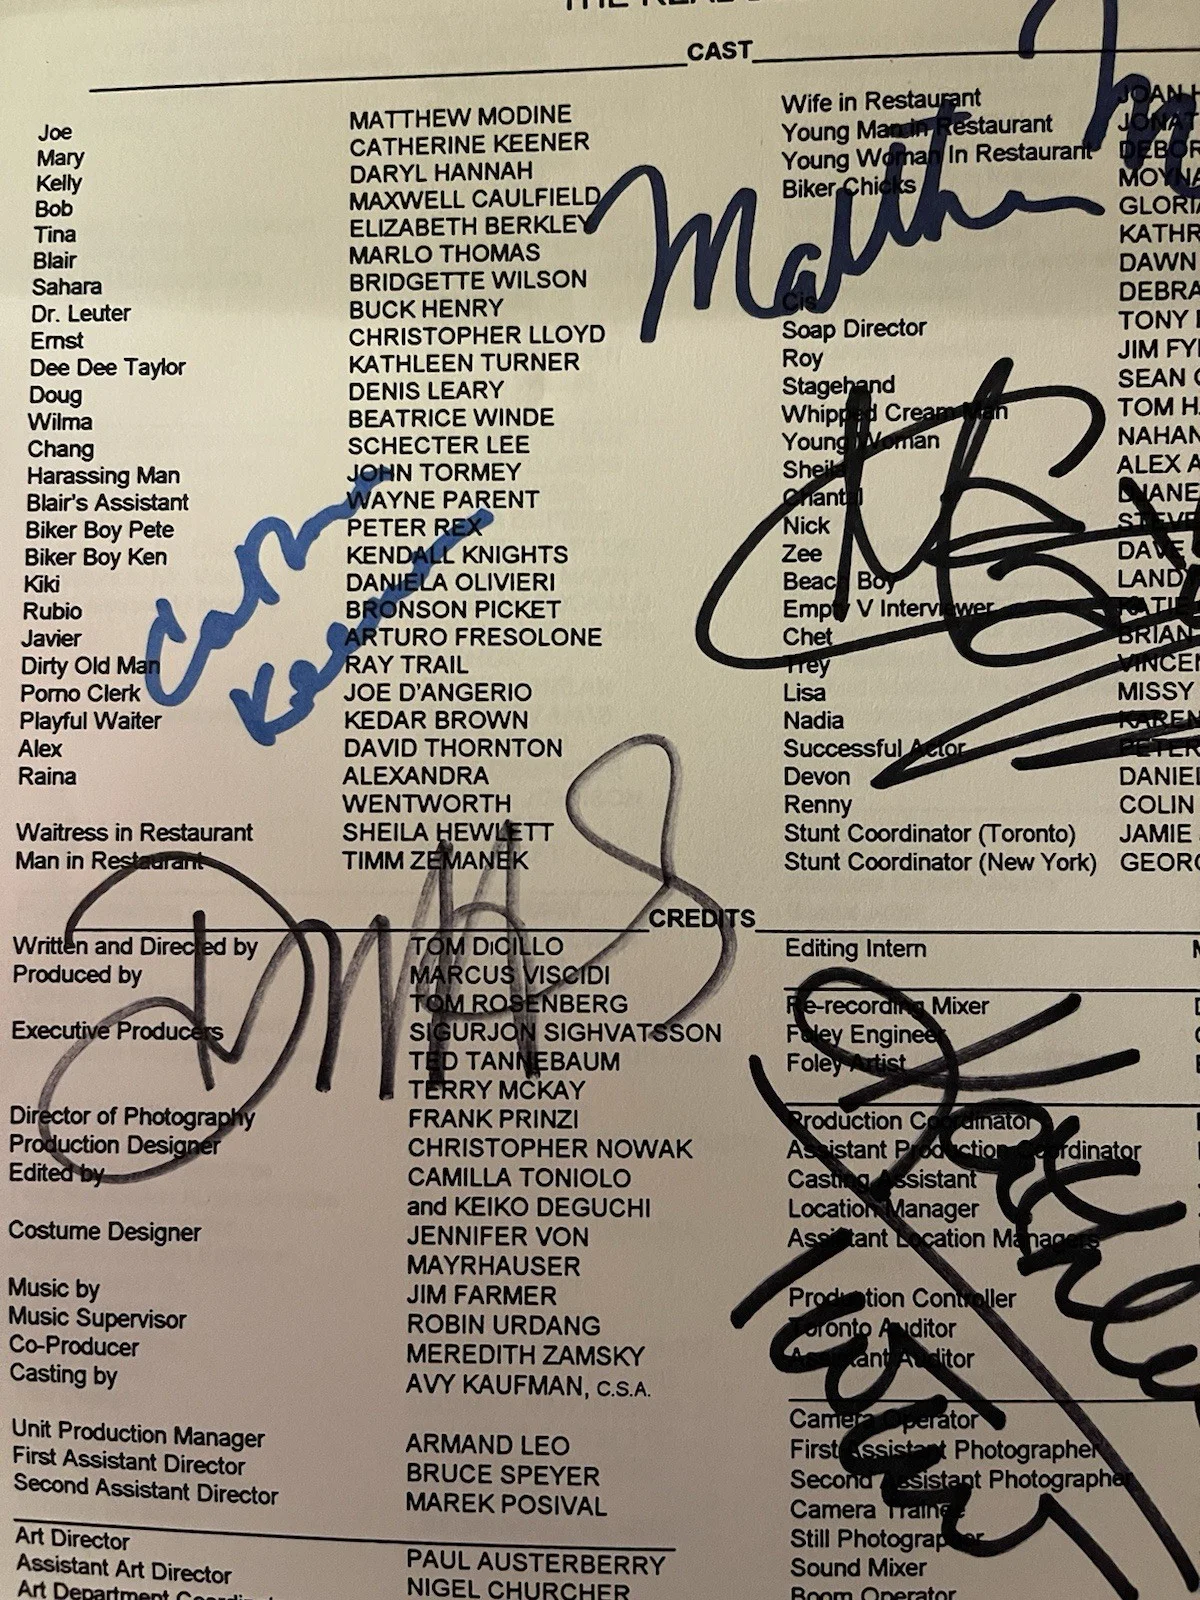 CAST
Joe MATTHEW MODINE
Mary CATHERINE KEENER
Kelly DARYL HANNAH
Bob MAXWELL CAULFIELD
Tina ELIZABETH BERKLEY
Blair MARLO THOMAS
Sahara BRIDGETTE WILSON
Dr. Leuter BUCK HENRY
Ernst CHRISTOPHER LLOYD
Dee Dee Taylor KATHLEEN TURNER
Doug DENIS LEARY
Wilma BEATRICE WINDE
Chang SCHECTER LEE
Harassing Man JOHN TORMEY
Blair's Assistant WAYNE PARENT
Biker Boy Pete PETER REX
Biker Boy Ken KENDALL KNIGHTS
Kiki DANIELA OLIVIERI
Rubio BRONSON PICKET
Javier ARTURO FRESOLONE
Dirty Old Man RAY TRAIL
Porno Clerk JOE D'ANGERIO
Playful Waiter KEDAR BROWN
Alex DAVID THORNTON
Raina ALEXANDRA
WENTWORTH
Waitress in Restaurant SHEILA HEWLETT
Man in Restaurant TIMM ZEMANEK
Wife in Restaurant JOAN
Young Man in Restaurant
Young Woman In Restaurant
Biker Chicks
KATHR
DAWN
DEBRA
Cis TONY
Soap Director JIM
Roy SEAN
Stagehand TOM
Whipped Cream Man NAHAN
Young Woman ALEX
Sheila
Chantal
Nick DAVE
Zee
Beach Boy
Empty V Interviewer
Chet
Trey MISSY
Lisa KAREN
Nadia
Successful Actor
Devon COLIN
Renny JAMIE
Stunt Coordinator (Toronto)
Stunt Coordinator (New York)
Matthew
Catherine
Keener
CREDITS
Written and Directed by TOM DiCILLO
Produced by MARCUS VISCIDI
TOM ROSENBERG
Executive Producers SIGURJON SIGHVATSSON
TED TANNEBAUM
TERRY MCKAY
Director of Photography FRANK PRINZI
Production Designer CHRISTOPHER NOWAK
Edited by CAMILLA TONIOLO
and KEIKO DEGUCHI
Costume Designer JENNIFER VON
MAYRHAUSER
Music by JIM FARMER
Music Supervisor ROBIN URDANG
Co-Producer MEREDITH ZAMSKY
Casting by AVY KAUFMAN, C.S.A.
Unit Production Manager ARMAND LEO
First Assistant Director BRUCE SPEYER
Second Assistant Director MAREK POSIVAL
Art Director PAUL AUSTERBERRY
Assistant Art Director NIGEL CHURCHER
Art Department
Editing Intern
Re-recording Mixer
Foley Engineer
Foley Artist
Production Coordinator
Assistant Production Coordinator
Casting Assistant
Location Manager
Assistant Location Managers
Production Controller
Toronto Auditor
Assistant Auditor
Camera Operator
First Assistant Photographer
Second Assistant Photographer
Camera Trainee
Still Photographer
Sound Mixer
Boom Operator